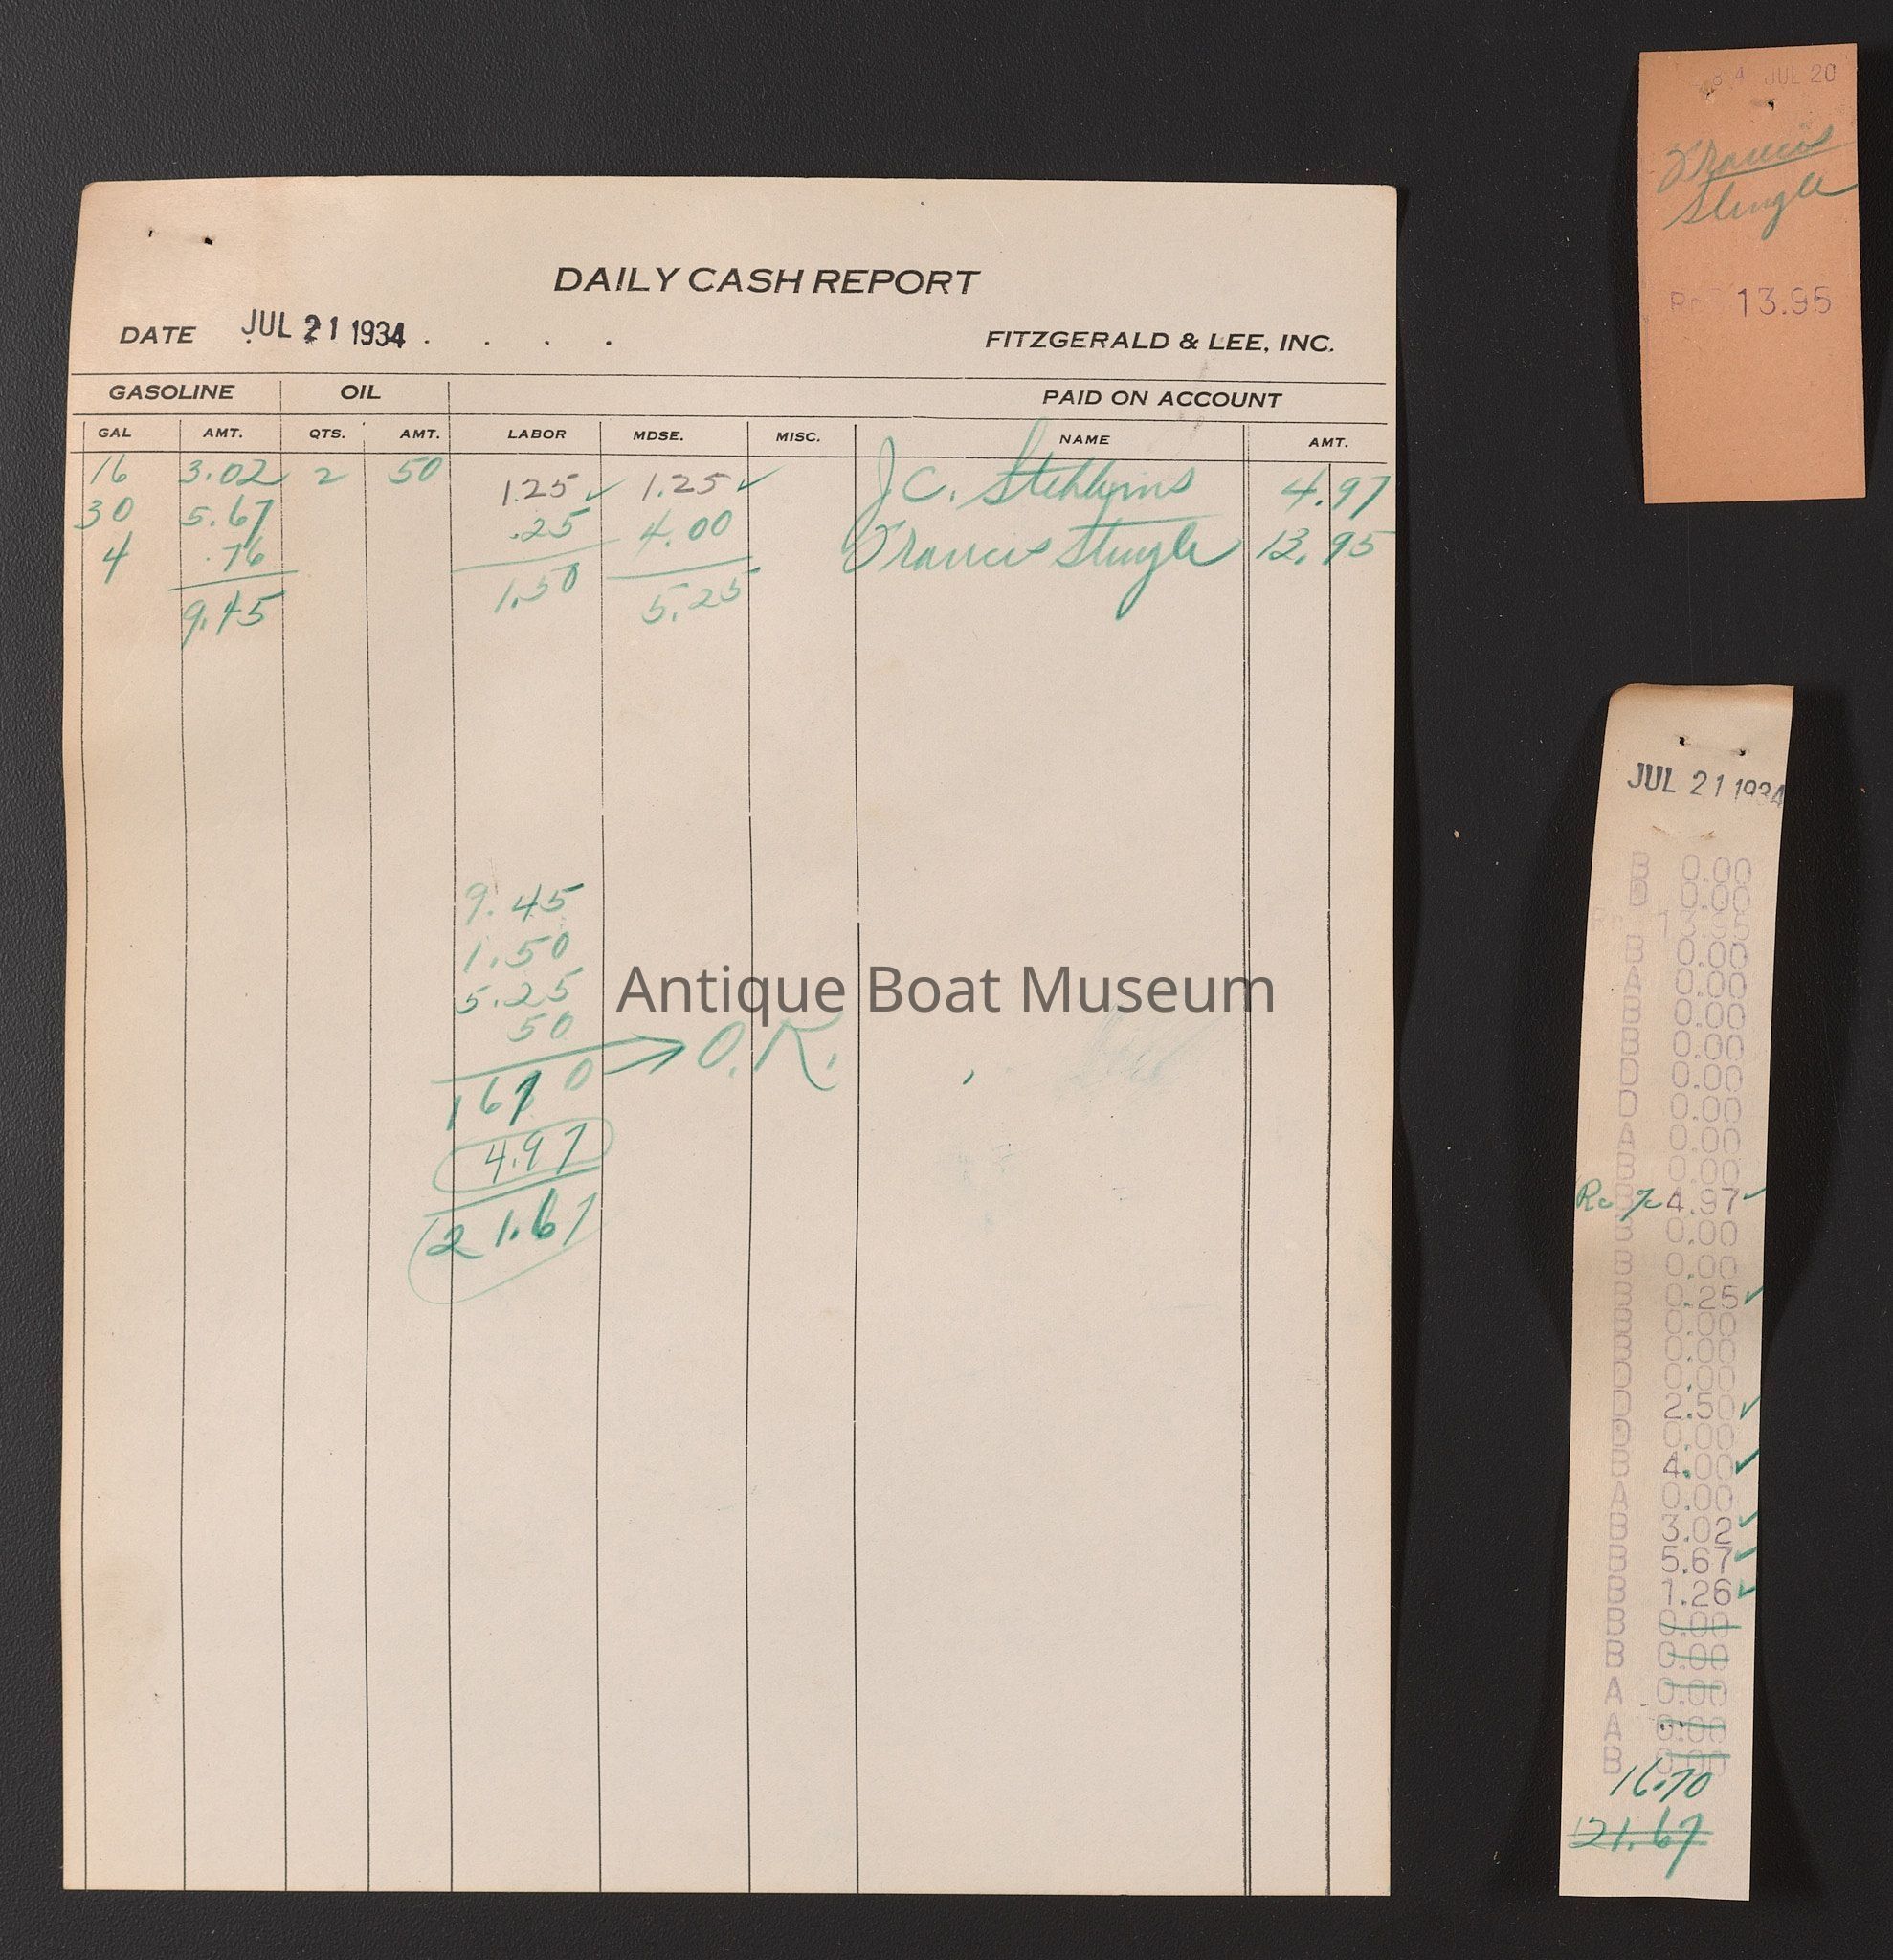 DAILY CASH REPORT
DATE JUL 21 1934 . . . . FITZGERALD & LEE, INC.
GASOLINE OIL PAID ON ACCOUNT
GAL AMT. QTS. AMT. LABOR MDSE. MISC. NAME AMT.
16 3.02 2 50 1.25 ✓ 1.25 ✓ J.C. Stebbins 4.97
30 5.67 .25 4.00 Francis Slingle 13.95
4 .76 1.50 5.25
9.45
9.45
1.50
5.25
50
16 7 0 O.K.
4.97
21.67
Antique Boat Museum
34 JUL 20
Francis
Slingle
Rc 13.95
JUL 21 1934
B 0.00
D 0.00
13.95
B 0.00
A 0.00
B 0.00
B 0.00
D 0.00
D 0.00
A 0.00
B 0.00
Rc 4.97 ✓
B 0.00
B 0.00
B 0.25 ✓
B 0.00
B 0.00
D 0.00
D 2.50 ✓
D 0.00
B 4.00 ✓
A 0.00
B 3.02 ✓
B 5.67 ✓
B 1.26 ✓
B 0.00
B 0.00
A 0.00
A 0.00
B 0.00
16.70
21.67